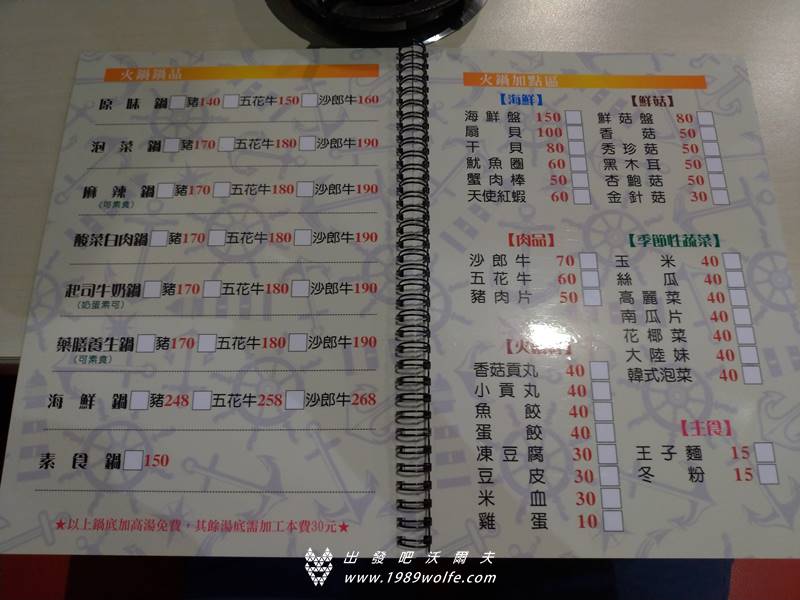 火鍋鍋品
原味鍋 豬140 五花牛150 沙郎牛160
泡菜鍋 豬170 五花牛180 沙郎牛190
麻辣鍋 豬170 五花牛180 沙郎牛190
(可素食)
酸菜白肉鍋 豬170 五花牛180 沙郎牛190
起司牛奶鍋 豬170 五花牛180 沙郎牛190
(奶蛋素可)
藥膳養生鍋 豬170 五花牛180 沙郎牛190
(可素食)
海鮮鍋 豬248 五花牛258 沙郎牛268
素食鍋 150
★以上鍋底加高湯免費，其餘湯底需加工本費30元★
火鍋加點區
【海鮮】
海鮮盤 150
扇貝 100
干貝 80
魷魚圈 60
蟹肉棒 50
天使紅蝦 60
【鮮菇】
鮮菇盤 80
香菇 50
秀珍菇 50
黑木耳 50
杏鮑菇 50
金針菇 30
【肉品】
沙郎牛 70
五花牛 60
豬肉片 50
【季節性蔬菜】
玉米 40
絲瓜 40
高麗菜 40
南瓜片 40
花椰菜 40
大陸妹 40
韓式泡菜 40
香菇貢丸 40
小貢丸 40
魚餃 40
蛋餃 40
凍豆腐 30
豆皮 30
米血 30
雞蛋 10
【主食】
王子麵 15
冬粉 15
出發吧沃爾夫
www.1989wolfe.com